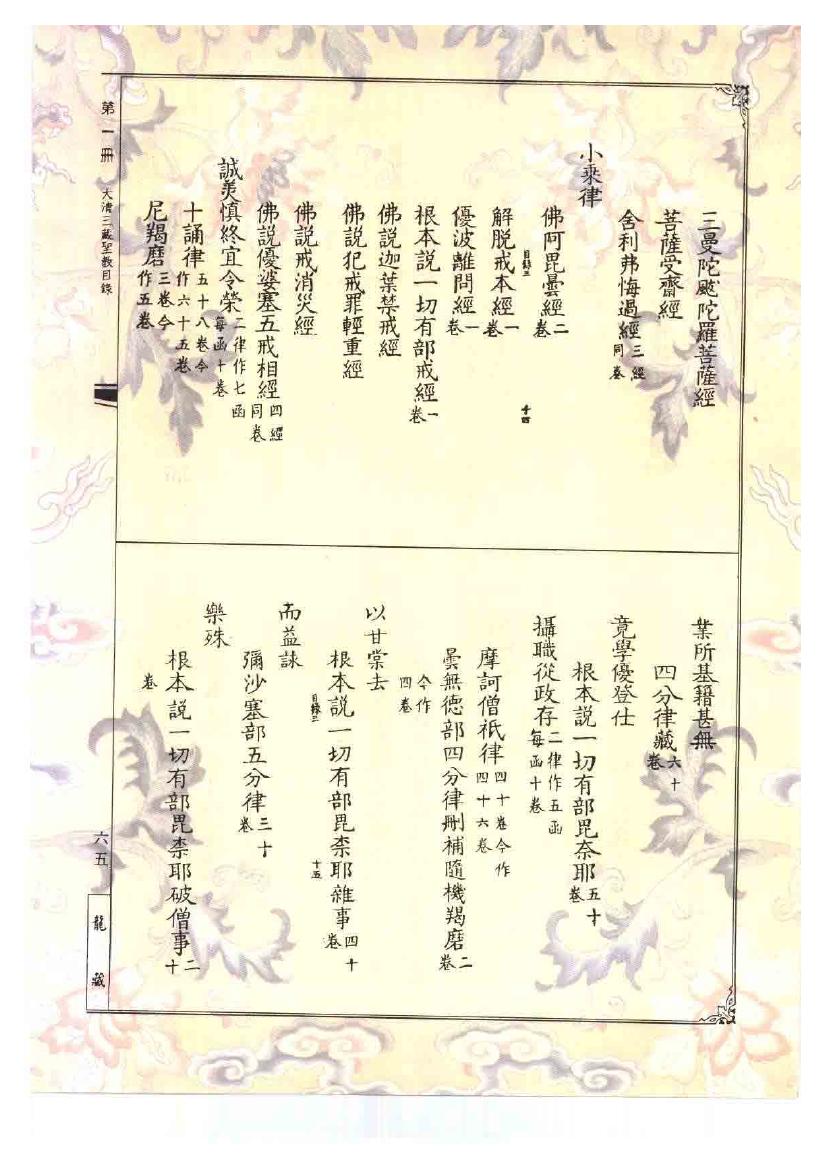 三曼陀颰陀羅菩薩經
菩薩受齋經
舍利弗悔過經三經同卷
小乘律
佛阿毘曇經二卷
目錄三 十四
解脫戒本經一卷
優波離問經一卷
根本說一切有部戒經一卷
佛說迦葉禁戒經
佛說犯戒罪輕重經
佛說戒消災經
佛說優婆塞五戒相經四經同卷
誠美慎終宜令榮二律作七函每函十卷
十誦律五十八卷今作六十五卷
尼羯磨三卷今作五卷
業所基籍甚無
四分律藏六十卷
竟學優登仕
根本說一切有部毘奈耶五十卷
攝職從政存二律作五函每函十卷
摩訶僧祇律四十卷今作四十六卷
曇無德部四分律刪補隨機羯磨二卷
今作四卷
以甘棠去
根本說一切有部毘柰耶雜事四十卷
目錄三 十五
而益詠
彌沙塞部五分律三十卷
樂殊
根本說一切有部毘柰耶破僧事二十
卷
第一冊 大清三藏聖教目錄
六五
龍藏